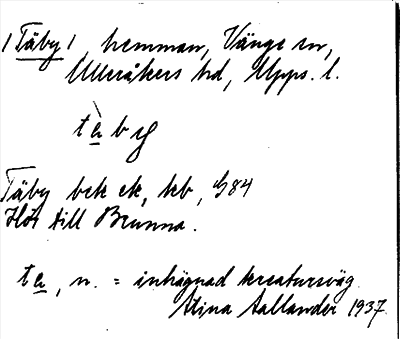 /Täby/, hemman, Vänge sn,
Ulleråkers hd, Upps. l.
tàby
Täby bek ek, hb, G84
Hör till Brunna.
ta, n. = inhägnad kreatursväg.
Stina Aallander 1937.